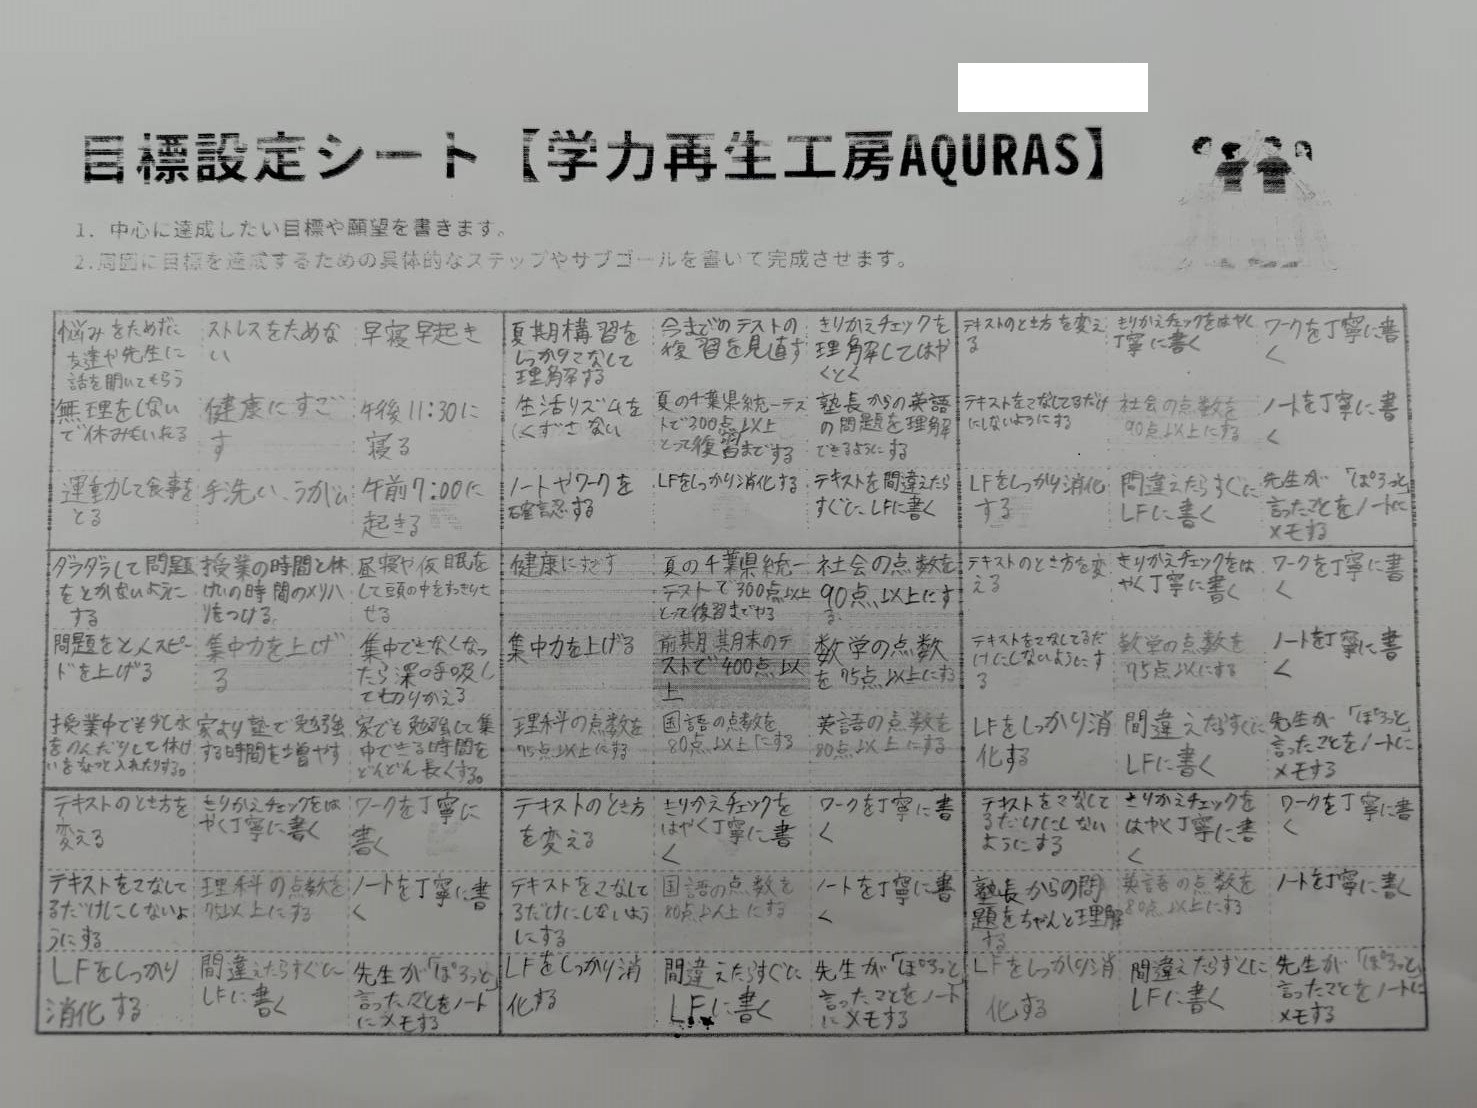 目標設定シート【学力再生工房AQURAS】
1. 中心に達成したい目標や願望を書きます。
2.周囲に目標を達成するための具体的なステップやサブゴールを書いて完成させます。
悩みをためずに
友達や先生に
話を聞いてもらう
ストレスをためな
い
早寝早起き
夏期構習を
しっかりこなして
理解する
今までのテストの
復習を見直す
きりかえチェックを
理解してはや
くとく
テキストのとき方を変え
る
きりかえチェックをはやく
丁寧に書く
ワークを丁寧に書
く
無理をしない
で休みもいれる
健康にすご
す
午後11:30に
寝る
生活リズムを
くずさない
夏の千葉県統一テス
トで300点以上
とって復習までする
塾長からの英語
の問題を理解
できるようにする
テキストをこなしてるだけ
にしないようにする
社会の点数を
90点以上にする
ノートを丁寧に書
く
運動して食事を
とる
手洗い、うがい
午前7:00に
起きる
ノートやワークを
確認する
LFをしっかり消化する
テキストを間違えたら
すぐにLFに書く
LFをしっかり消化
する
間違えたらすぐに
LFに書く
先生が「ぽろっと」
言ったことをノートに
メモする
ダラダラして問題
をとかないように
する
授業の時間と休
けいの時間のメリハ
リをつける
昼寝や仮眠を
して頭の中をすっきりさ
せる
健康にすごす
夏の千葉県統一
テストで300点以上
とって復習までやる
社会の点数を
90点以上にす
る
テキストのとき方を変
える
きりかえチェックをは
やく丁寧に書く
ワークを丁寧に書
く
問題をとくスピー
ドを上げる
集中力を上げ
る
集中できなくなっ
たら深呼吸し
て切りかえる
集中力を上げる
前期期末のテ
ストで400点以
上
数学の点数
を75点以上にする
テキストをこなしてるだ
けにしないようにす
る
数学の点数を
75点以上にする
ノートを丁寧に書
く
授業中でも少し水
をのんだりして休け
いをちょっと入れたりする。
家より塾で勉強
する時間を増やす
家でも勉強して集
中できる時間を
どんどん長くする。
理科の点数を
75点以上にする
国語の点数を
80点以上にする
英語の点数を
80点以上にする
LFをしっかり消
化する
間違えたらすぐに
LFに書く
先生が「ぽろっと」
言ったことをノートに
メモする
テキストのとき方を
変える
きりかえチェックをは
やく丁寧に書く
ワークを丁寧に
書く
テキストのとき方
を変える
きりかえチェックを
はやく丁寧に書
く
ワークを丁寧に書
く
テキストをこなして
るだけにしない
ようにする
きりかえチェックを
はやく丁寧に書
く
ワークを丁寧に書
く
テキストをこなして
るだけにしないよ
うにする
理科の点数を
75以上にする
ノートを丁寧に書
く
テキストをこなして
るだけにしないよう
にする
国語の点数を
80点以上にする
ノートを丁寧に書
く
塾長からの問
題をちゃんと理解
する
英語の点数を
80点以上にする
ノートを丁寧に書く
LFをしっかり
消化する
間違えたらすぐに
LFに書く
先生が「ぽろっと」
言ったことをノート
にメモする
LFをしっかり消
化する
間違えたらすぐに
LFに書く
先生が「ぽろっと」
言ったことをノート
にメモする
LFをしっかり消
化する
間違えたらすぐに
LFに書く
先生が「ぽろっと」
言ったことをノートに
メモする